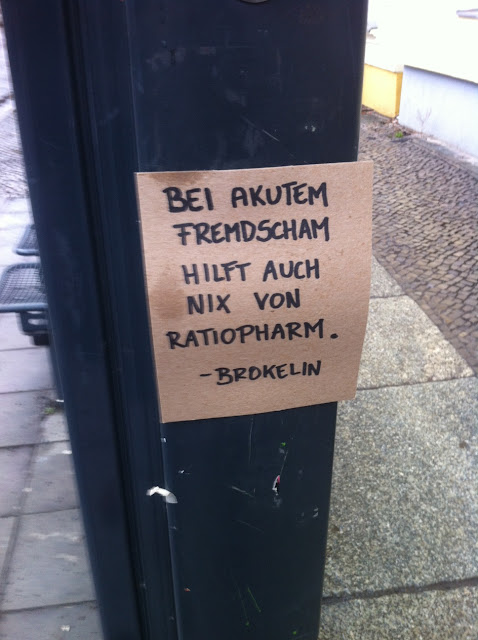 BEI AKUTEM
FREMDSCHAM
HILFT AUCH
NIX VON
RATIOPHARM.
-BROKELIN